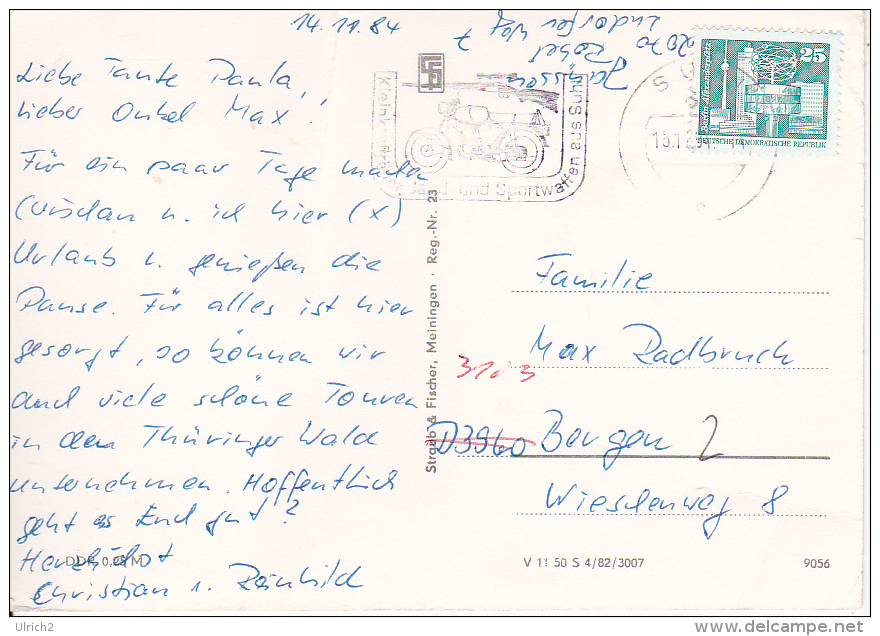 14.11.84
Liebe Tante Paula,
lieber Onkel Max!
Für ein paar Tage machen
u. ich hier (x)
Urlaub u. genießen die
Pause. Für alles ist hier
gesorgt, so können wir
auch viele schöne Touren
in den Thüringer Wald
unternehmen. Hoffentlich
geht es Euch gut?
Herzlichst
Christian u. Reinhild
DDR 0,25 M
Janssen
2070 Röbel
7
Kleinkraft
Jagd- und Sportwaffen aus Suhl
SU
25
DEUTSCHE DEMOKRATISCHE REPUBLIK
Straub & Fischer, Meiningen · Reg.-Nr. 23
Familie
Max Radbruch
3103
D3960 Bergen 2
Wiesenweg 8
V 11 50 S 4/82/3007
9056
Ulrich2
www.delcampe.net